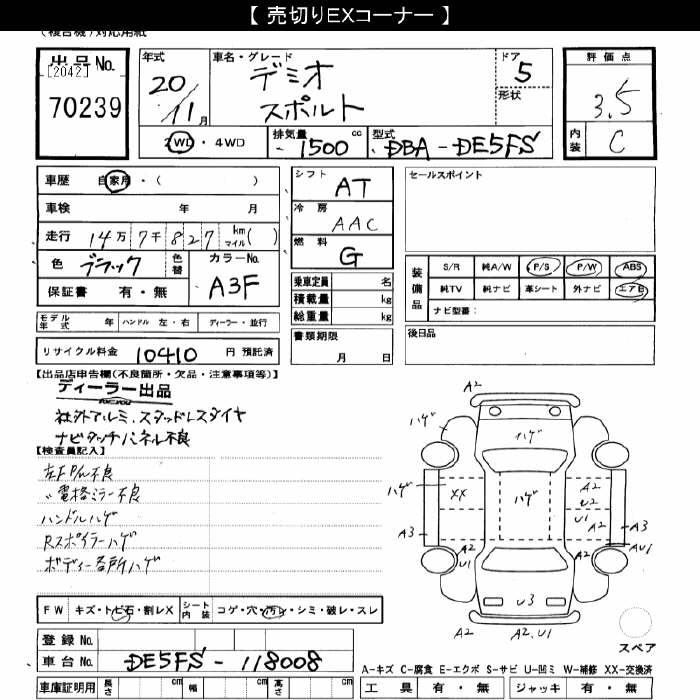 【 売切りEXコーナー 】
(複合機)対応用紙
出品No.
[2042]
70239
年式
20/11月
車名・グレード
デミオ
スポルト
ドア
5
形状
2WD・4WD
排気量
1500 cc
型式
DBA-DE5FS
評価点
3.5
内装
C
車歴 自家用・( )
車検 年 月
走行 14万7千827 km マイル( )
色 ブラック 色替
カラーNo.
A3F
保証書 有・無
シフト
AT
冷房
AAC
燃料
G
セールスポイント
装備品
S/R 純A/W P/S P/W ABS
純TV 純ナビ 革シート 外ナビ エアB
ナビ型番:
乗車定員 名
積載量 kg
総重量 kg
モデル年式 年 ハンドル 左・右 ディーラー・並行
書類期限
月 日
後日品
リサイクル料金 10410 円 預託済
【出品店申告欄(不良箇所・欠品・注意事項等)】
ディーラー出品
社外アルミ、スタッドレスタイヤ
ナビタッチパネル不良
【検査員記入】
左F P/W不良
〃電格ミラー不良
ハンドルハゲ
Rスポイラーハゲ
ボディー各所ハゲ
A2
ハゲ
ハゲ
ハゲ
XX
ハゲ
A2
U2
U1
A2
A3
A3
AU1
A2
U1
A2
U3
A2
A2,U1
スペア
FW キズ・トビ石・割レX シート内装 コゲ・穴・汚レ・シミ・破レ・スレ
登録 No.
車台 No. DE5FS-118008
A-キズ C-腐食 E-エクボ S-サビ U-凹ミ W-補修 XX-交換済
車庫証明用 長さ cm 幅 cm 高さ cm
工具 有・無 ジャッキ 有・無